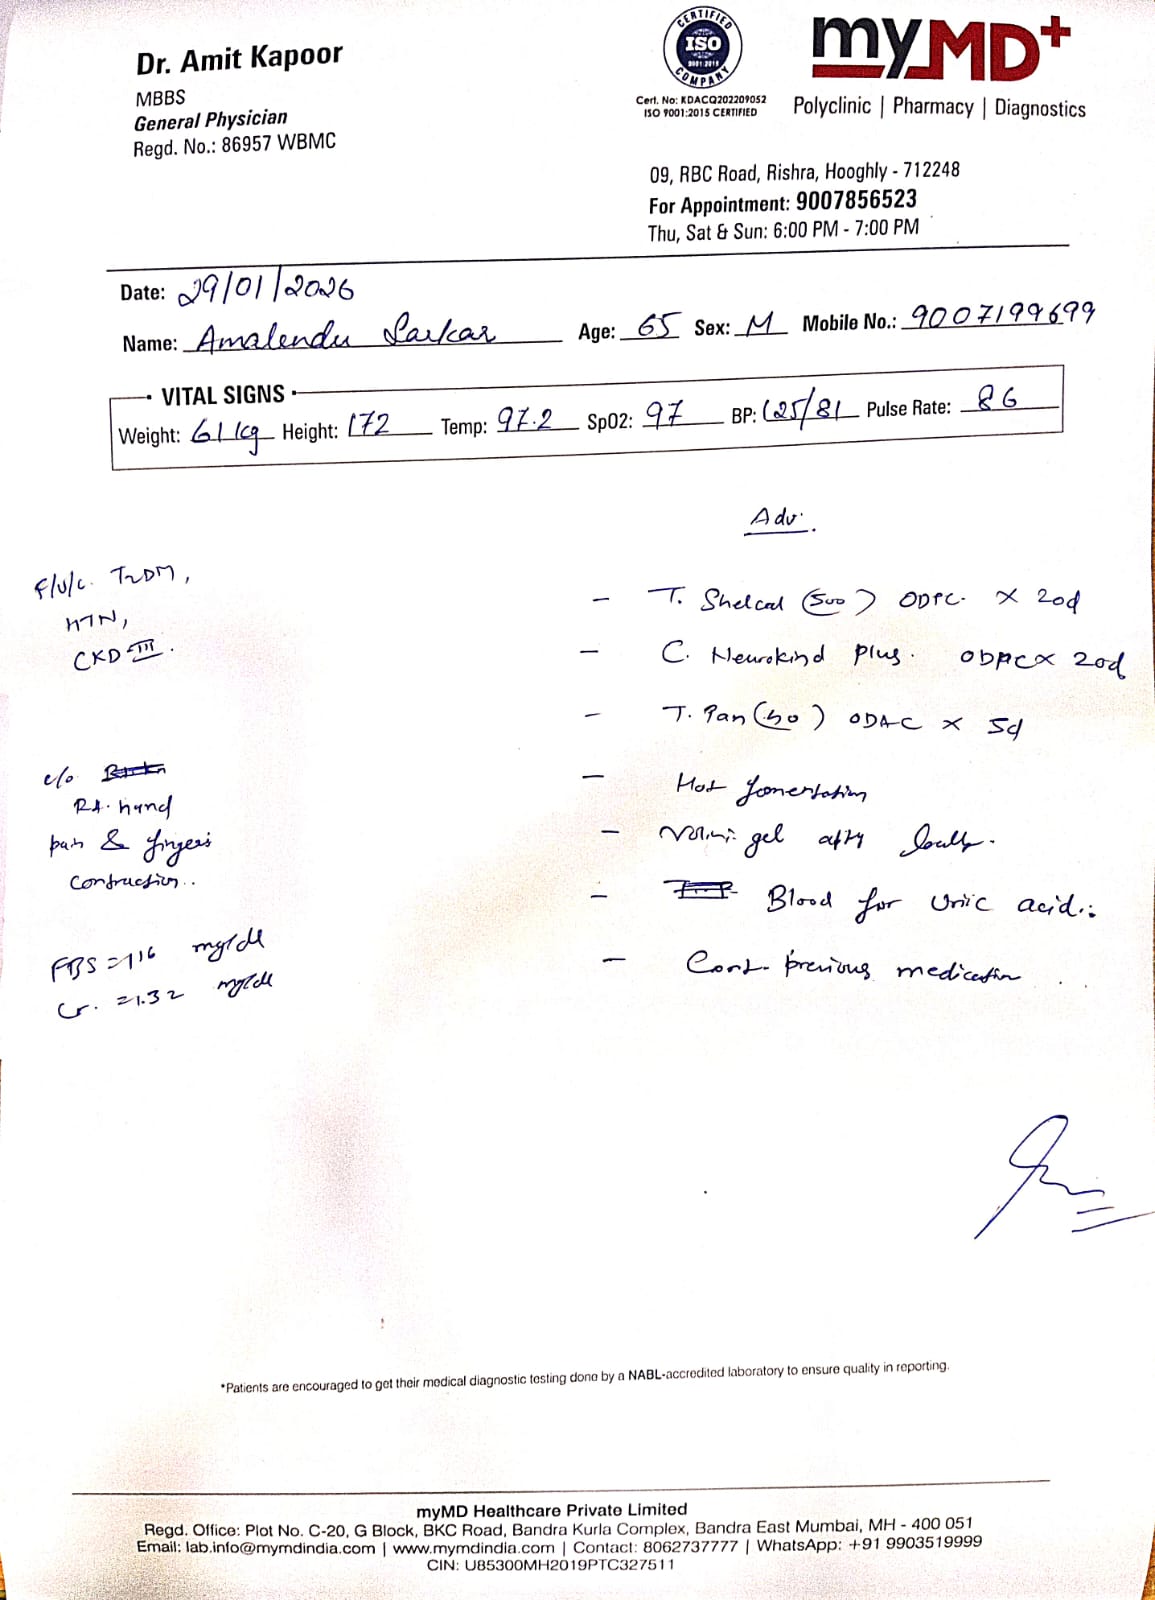 Dr. Amit Kapoor
MBBS
General Physician
Regd. No.: 86957 WBMC
CERTIFIED
ISO
9001:2015
COMPANY
Cert. No: KDACQ202209052
ISO 9001:2015 CERTIFIED
myMD+
Polyclinic | Pharmacy | Diagnostics
09, RBC Road, Rishra, Hooghly - 712248
For Appointment: 9007856523
Thu, Sat & Sun: 6:00 PM - 7:00 PM
Date: 29/01/2026
Name: Amalendu Sarkar Age: 65 Sex: M Mobile No.: 9007199699
VITAL SIGNS
Weight: 61 kg Height: 172 Temp: 97.2 SpO2: 97 BP: 125/81 Pulse Rate: 86
Adv.
F/U/C. T2DM,
HTN,
CKD-III.
- T. Shelcal (500) ODPC. X 20d
- C. Neurokind Plus. ODPC X 20d
- T. Pan (40) ODAC X 5d
c/o
Rt. hand
pain & fingers
contraction..
- Hot fomentation
- Volini gel apply locally.
- Blood for Uric acid.
- Cont. previous medication
FBS = 116 mg/dl
Cr. = 1.32 mg/dl
*Patients are encouraged to get their medical diagnostic testing done by a NABL-accredited laboratory to ensure quality in reporting.
myMD Healthcare Private Limited
Regd. Office: Plot No. C-20, G Block, BKC Road, Bandra Kurla Complex, Bandra East Mumbai, MH - 400 051
Email: lab.info@mymdindia.com | www.mymdindia.com | Contact: 8062737777 | WhatsApp: +91 9903519999
CIN: U85300MH2019PTC327511